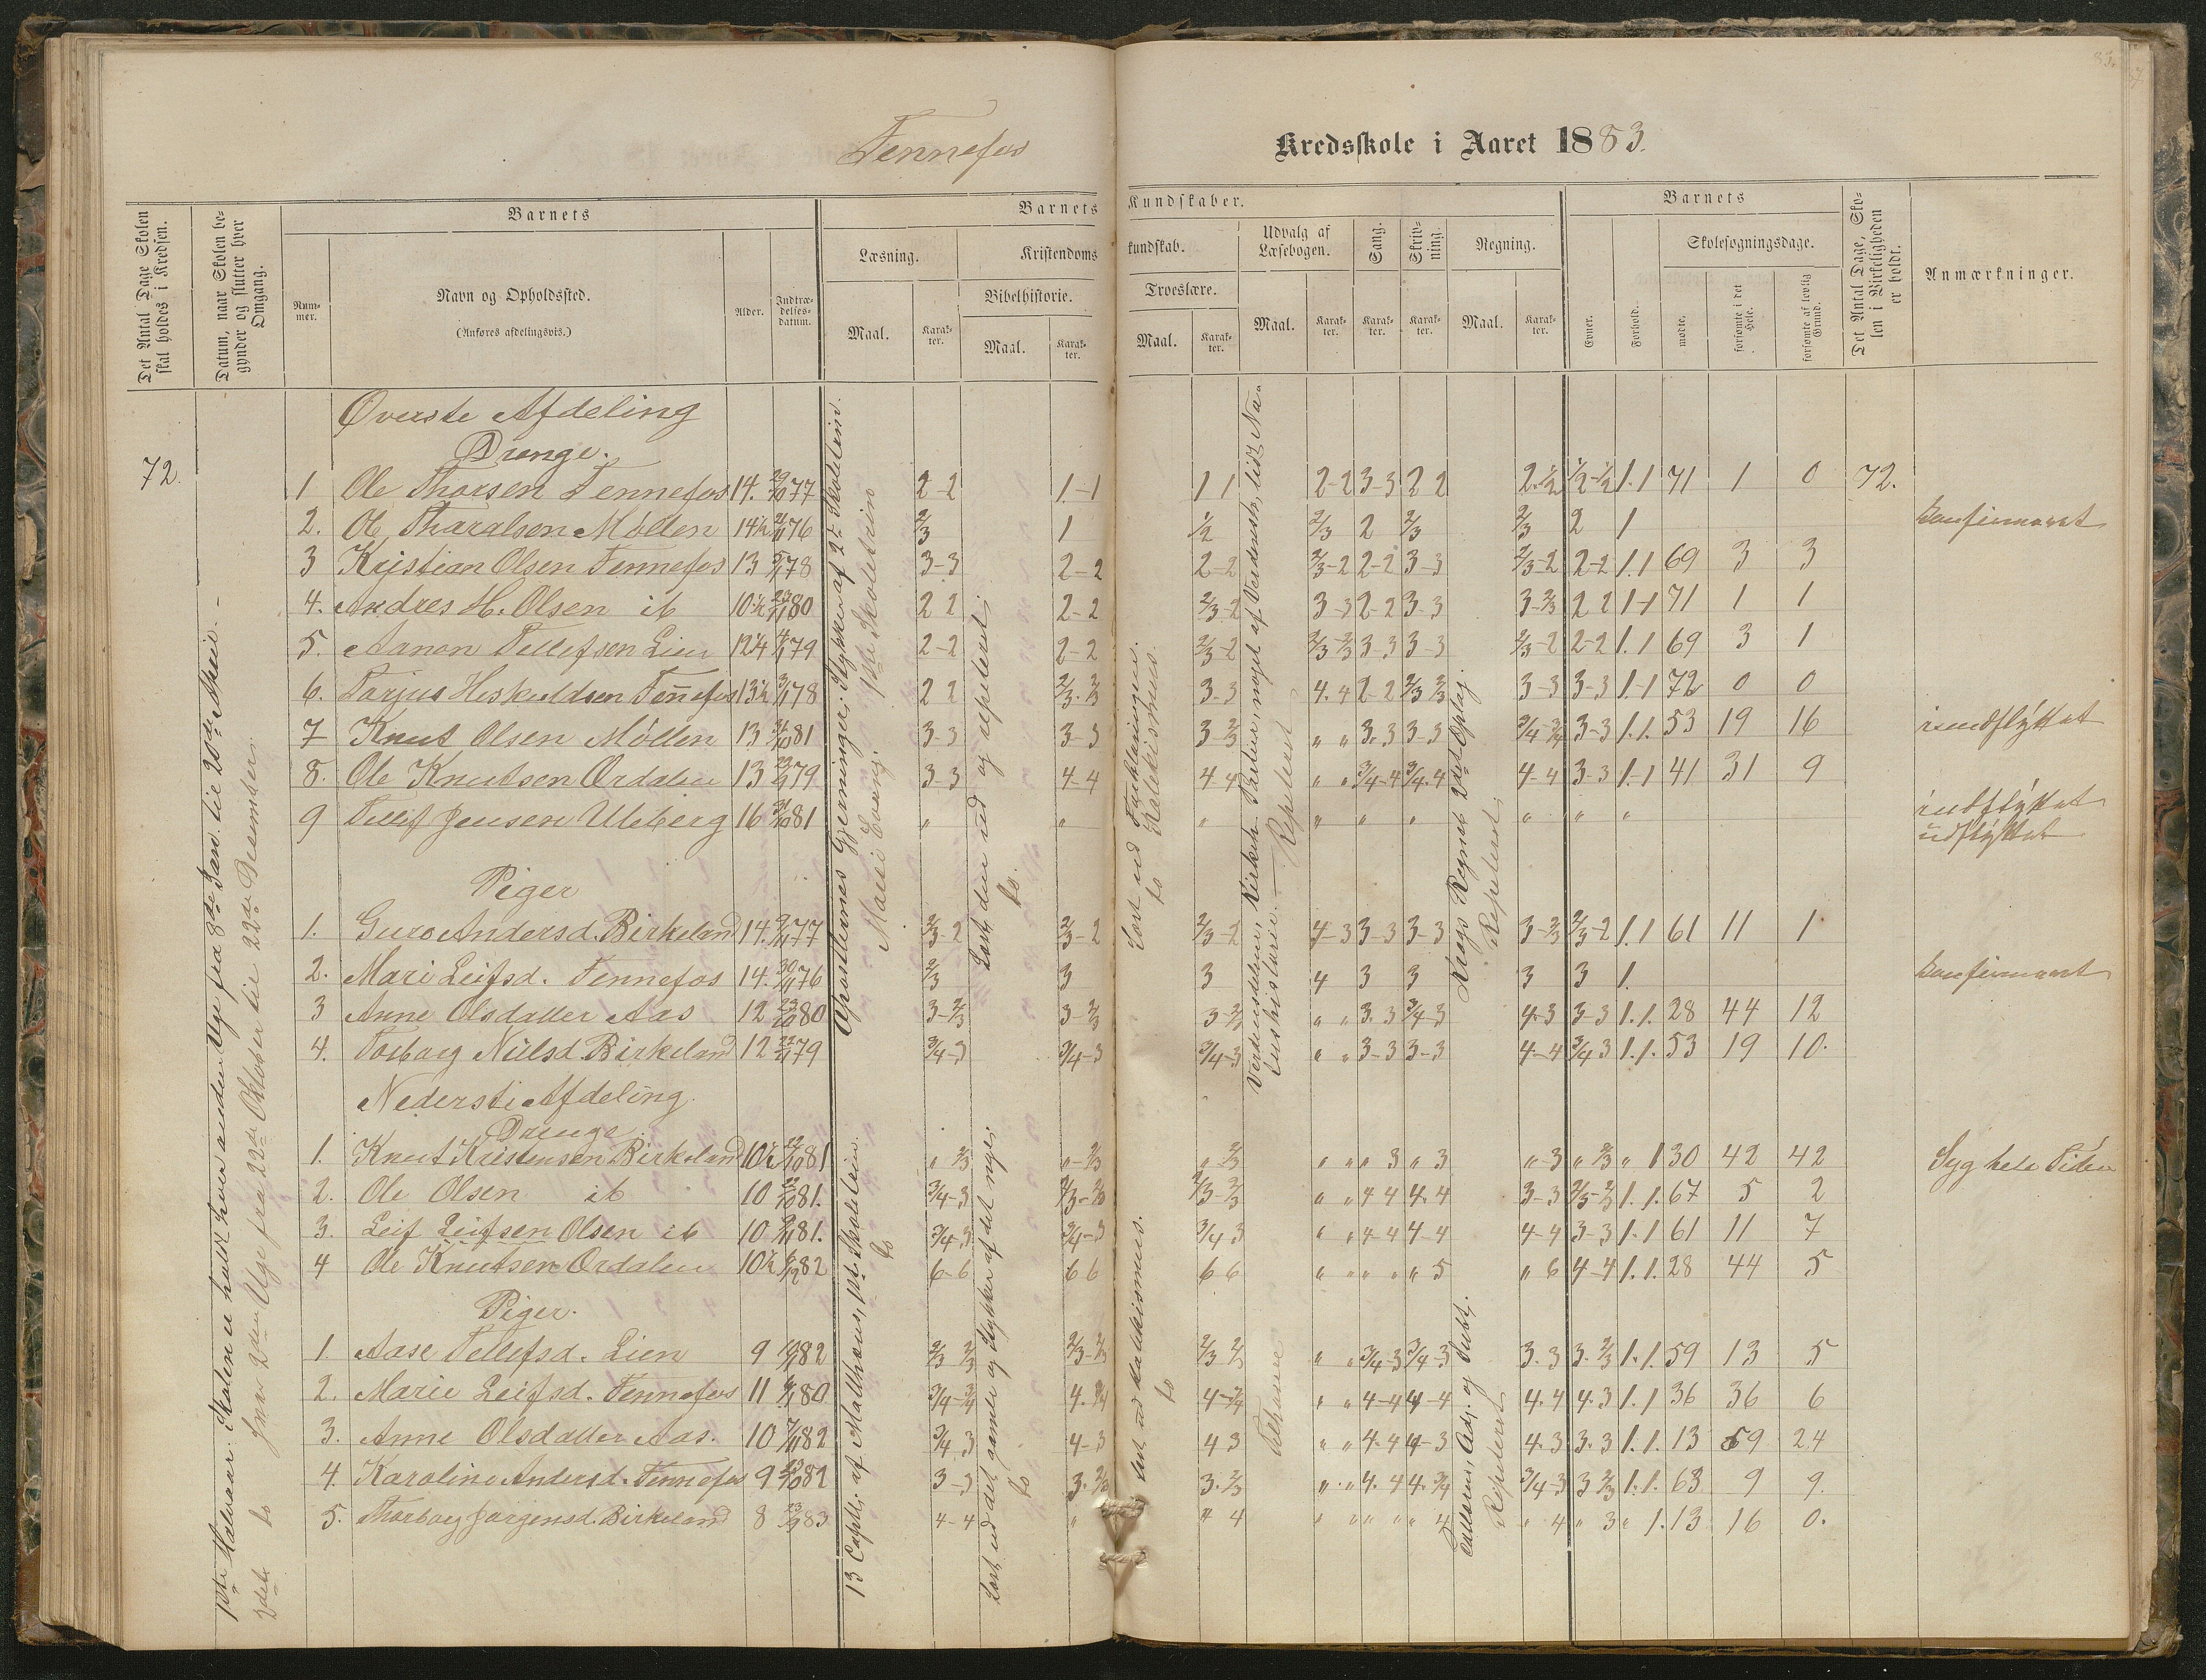 Fennefos
Kredsskole i Aaret 1883.
Det Antal Dage Skolen skal holdes i Kredsen.
Datum, naar Skolen begynder og slutter hver Omgang.
Barnets
Nummer.
Navn og Opholdssted.
(Anføres afdelingsvis.)
Alder.
Indtrædelsesdatum.
Barnets
Læsning.
Maal.
Karakter.
Kristendoms
Bibelhistorie.
Maal.
Karakter.
Kundskaber.
kundskab.
Troeslære.
Maal.
Karakter.
Udvalg af Læsebogen.
Maal.
Karakter.
Sang.
Karakter.
Skrivning.
Karakter.
Regning.
Maal.
Karakter.
Barnets
Evner.
Forhold.
Skolesøgningsdage.
mødte.
forsømte i det Hele.
forsømte af lovlig Grund.
Det Antal Dage, Skolen i Virkeligheden er holdt.
Anmærkninger.
Øverste Afdeling
Drenge.
72.
1 Ole Thorsen Fennefos 14. 29/10 77 2-2 1-1 1 1 2-2 3-3 2 2 2-1/2 1/2-1/2 1.1 71 1 0 72.
2. Ol Tharalsen Møllen 14½ 2/11 76 2/3 1 1/2 2/3 2 2/3 2/3 2 1 konfirmeret
3 Kristian Olsen Fennefos 13 5/11 78 3-3 2-2 2-2 2/3-2 2-2 3-3 2/3-2 2-2 1.1 69 3 3
4. Andres H. Olsen ib 10½ 23/11 80 2 2 2-2 2/3-2 3-3 2-2 3-3 3-2/3 2 2 1-1 71 1 1
5. Aanon Tellefsen Lien 12¼ 4/11 79 2-2 2-2 2/3-2 2/3-2/3 3-3 3-3 2/3-2 2-2 1.1 69 3 1
6. Tarjus Heskuldsen Fennefos 13½ 3/11 78 2 2 2/3.2/3 3-3 4.4 2-2 2/3 2/3 3-3 3-3 1.1 72 0 0
7 Knut Olsen Møllen 13 31/10 81 3-3 3-3 3 2/3 " " 3.3 3-3 3/4-3/4 3-3 1.1. 53 19 16 indflyttet
8. Ole Knutsen Ordalen 13 23/9 79 3-3 4-4 4 4 " " 3/4-4 3/4.4 4-4 3-3 1.1 41 31 9
9 Tellef Jensen Uleberg 16 31/10 81 " " " " " " " " " indflyttet
udflyttet
Piger
1. Guro Andersd. Birkeland 14. 9/11 77 2/3-2 2/3-2 2/3-2 4-3 3-3 3-3 3-2/3 2/3-2 1.1 61 11 1
2. Mari Leifsd. Fennefos 14. 30/11 76 2/3 3 3 4 3 3 3 3 1. konfirmeret
3 Anne Olsdatter Aas 12 23/10 80 3-2/3 3-2/3 3-2/3 " " 3.3 3/4-3 4-3 3-3 1.1. 28 44 12
4. Torborg Nielsd. Birkeland 12 22/11 79 3/4-3 3/4-3 3/4-3 " " 3-3 3-3 4-4 3/4 3 1.1. 53 19 10.
Nederste Afdeling.
Drenge
1. Knut Kristensen Birkeland 10½ 22/10 81 " 2/3 "-2/3 " 2/3 " " " 3 " 3 "-3 " 2/3 " 1 30 42 42 Syg hele Tiden
2. Ole Olsen ib 10 22/10 81. 3/4-3 2/3-2/3 2/3-2/3 " " 4 4 4.4 3-3 2/3-2/3 1.1. 67 5 2
3. Leif Leifsen Olsen ib 10 9/11 81. 3/4-3 3/4-3 3/4 3 " " 4-4 4-4 4-4 3-3 1.1 61 11 7
4 Ole Knutsen Ordalen 10½ 6/12 82 6-6 6 6 6 6 " " " " " 5 " 6 4-4 1.1. 28 44 5
Piger.
1. Aase Tellefsd. Lien 9 82 2/3 2/3 2/3-2/3 2/3 2/3 " " 3/4-3 3/4-3 3.3 3.2/3 1.1. 59 13 5
2. Marie Leifsd. Fennefos 11 80 3/4-3/4 4.3/4 4-3/4 " " 4-4 4-4 4.4 4.3 1.1 36 36 6
3. Anne Olsdatter Aas. 10 7/11 82 3/4 3 4-3 4 3 " " 4.4 4-3 4.3 3.3 1.1. 13 59 24
4. Karoline Andersd. Fennefos 9 23/10 82 3-3 3.2/3 3.2/3 " " 4.4 4.3/4 3/4-3 3 2/3 1.1. 63 9 9.
5. Thorborg Jørgensd. Birkeland 8 23/9 83 4-4 " " 4 " " " " " 4 " 4 " 3 " 1. 13 16 0.
1ste Halvaar: Skolen er holdt hver anden Uge fra 8de Jan. til 20de
2det do hver 2den Uge fra 22de Oktober til 22de Desember.
Apostlernes Gjerninger, Stykker af 2 Skoletrin.
Marci Evang. 1ste Skoletrin
Læst den ud og repeteret.
do.
Læst ud Forklaringen.
do Katekismus.
Verdensdelene, Kirkeh. noget af Verdensh, lidt Naturhistorie. — Repeteret
Kregs Regneb. 2det Oplag.
Repeteret.
13 Caph. af Matthæus, 1ste Skoletrin.
do
Læst ud det gamle og Stykker af det nye.
do
Læst ud Katekismus.
do
Add. og Subt.
Repeteret